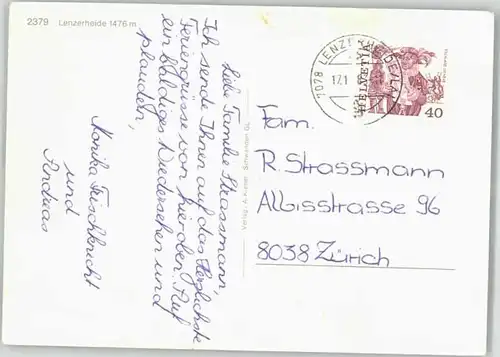 2379 Lenzerheide 1476 m
Liebi Familie Strassmann,
Ich sende Ihnen auf das Herzlichste
Feriengrüsse von hieroben. Auf
ein baldiges Wiedersehen und
plaudern,
Monika Frischknecht
und
Andreas
7078 LENZERHEIDE/LAI
17.1
HELVETIA
40
Fam.
R. Strassmann
Albisstrasse 96
8038 Zürich